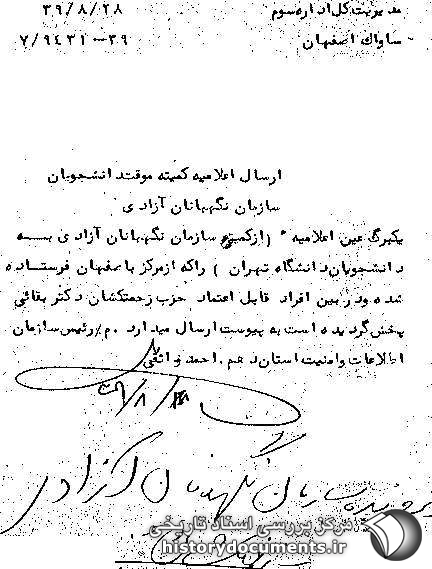 مدیریت کل اداره سوم ۳۹/۸/۲۸
ساواک اصفهان ۷/۹۴۳۱-۳۹
ارسال اعلامیه کمیته موقت دانشجویان
سازمان نگهبانان آزادی
یکبرگ عین اعلامیه " (از کمیته سازمان نگهبانان آزادی بسه
دانشجویان دانشگاه تهران ) راکه از مرکز باصفهان فرستاده
شده و در بین افراد قابل اعتماد حزب زحمتکشان دکتر بقائی
پخش گردیده است به پیوست ارسال میدارد . م/ رئیس سازمان
اطلاعات وامنیت استان دهم . احمد واثقی
سازمان نگهبانان آزادی
مرکز بررسی اسناد تاریخی
historydocuments.ir